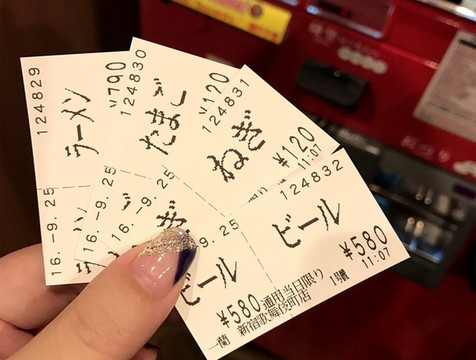 124829
ラーメン
¥790
16.-9.25
124830
たまご
¥120
16.-9.25
124831
ねぎ
¥120
11:07
9.25
124832
ビール
¥580
11:07
ビール
¥580
通用当日限り
1号機
一蘭 新宿歌舞伎町店